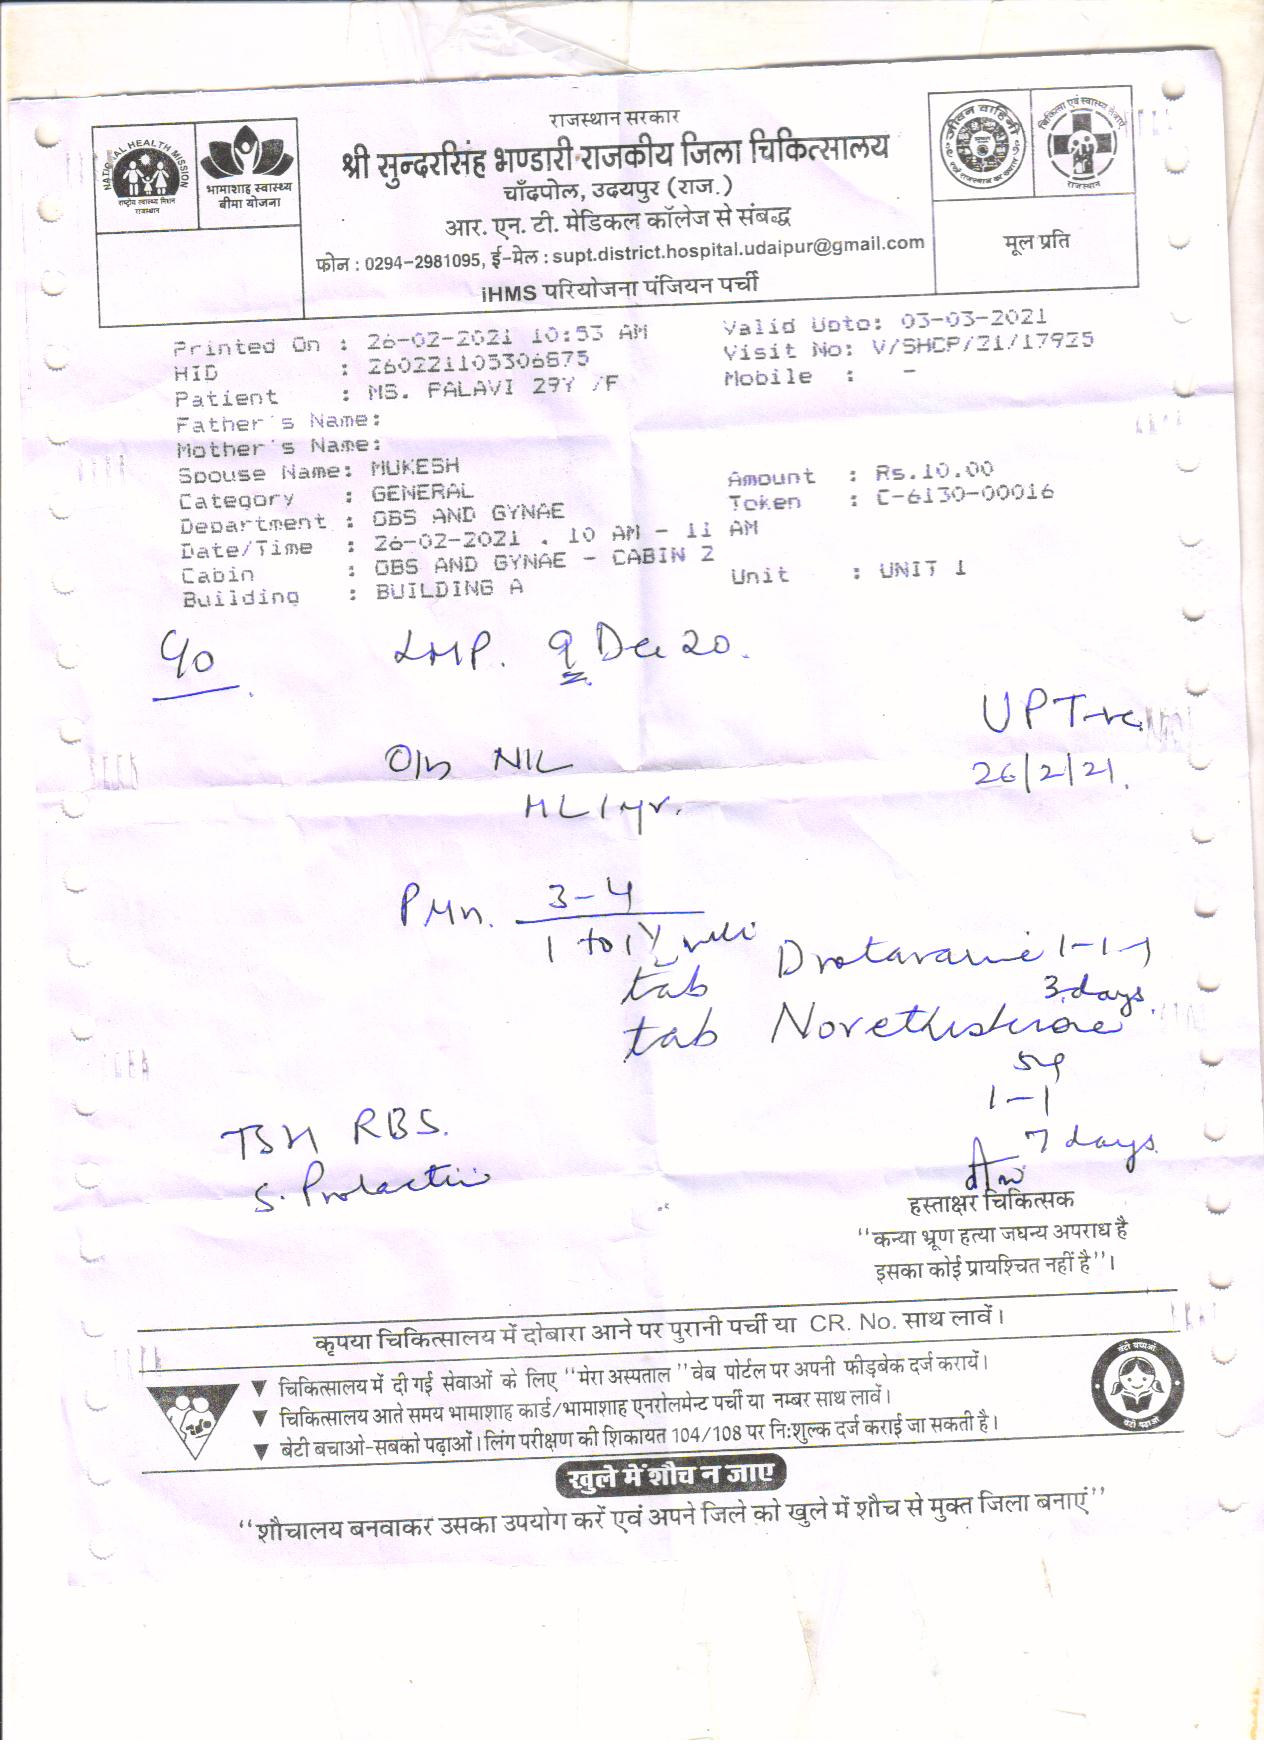 राजस्थान सरकार
श्री सुन्दरसिंह भण्डारी राजकीय जिला चिकित्सालय
चाँदपोल, उदयपुर (राज.)
आर. एन. टी. मेडिकल कॉलेज से संबद्ध
फोन : 0294-2981095, ई-मेल : supt.district.hospital.udaipur@gmail.com
iHMS परियोजना पंजियन पर्ची
NATIONAL HEALTH MISSION
राष्ट्रीय स्वास्थ्य मिशन
राजस्थान
भामाशाह स्वास्थ्य
बीमा योजना
जीवन वाहिनी
चिकित्सा एवं स्वास्थ्य सेवाएँ
राजस्थान
मूल प्रति
Printed On : 26-02-2021 10:53 AM Valid Upto: 03-03-2021
HID : 260221105306875 Visit No: V/SHCP/21/17925
Patient : MS. PALAVI 29Y /F Mobile : -
Father's Name:
Mother's Name:
Spouse Name: MUKESH Amount : Rs.10.00
Category : GENERAL Token : C-6130-00016
Department : OBS AND GYNAE
Date/Time : 26-02-2021 , 10 AM - 11 AM
Cabin : OBS AND GYNAE - CABIN 2 Unit : UNIT 1
Building : BUILDING A
LMP. 9 Dec 20.
UPT-ve
26/2/21.
O/h NIL
ML 1 yr.
3-4
tab Drotavarine 1-1-1
3 days.
tab Norethisterone
1-1
7 days.
TSH RBS.
S. Prolactin
हस्ताक्षर चिकित्सक
"कन्या भ्रूण हत्या जघन्य अपराध है
इसका कोई प्रायश्चित नहीं है"।
कृपया चिकित्सालय में दोबारा आने पर पुरानी पर्ची या CR. No. साथ लावें।
▼ चिकित्सालय में दी गई सेवाओं के लिए "मेरा अस्पताल" वेब पोर्टल पर अपनी फीड़बेक दर्ज करायें।
▼ चिकित्सालय आते समय भामाशाह कार्ड/भामाशाह एनरोलमेन्ट पर्ची या नम्बर साथ लावें।
▼ बेटी बचाओ-सबको पढ़ाओं। लिंग परीक्षण की शिकायत 104/108 पर नि:शुल्क दर्ज कराई जा सकती है।
खुले में शौच न जाए
"शौचालय बनवाकर उसका उपयोग करें एवं अपने जिले को खुले में शौच से मुक्त जिला बनाएं"